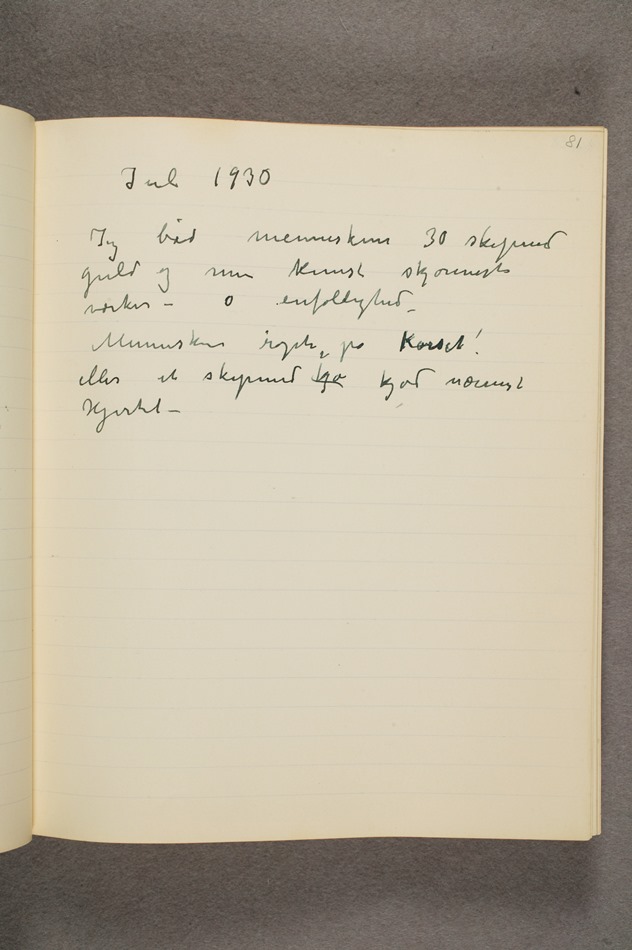 81
Jul 1930
Jeg bød menneskene 30 skepund
guld og min kunst skjønneste
værker – o enfoldighed –
Menneskene ropte, på Korset!
eller et skepund kjø kjød nærmest
hjertet –